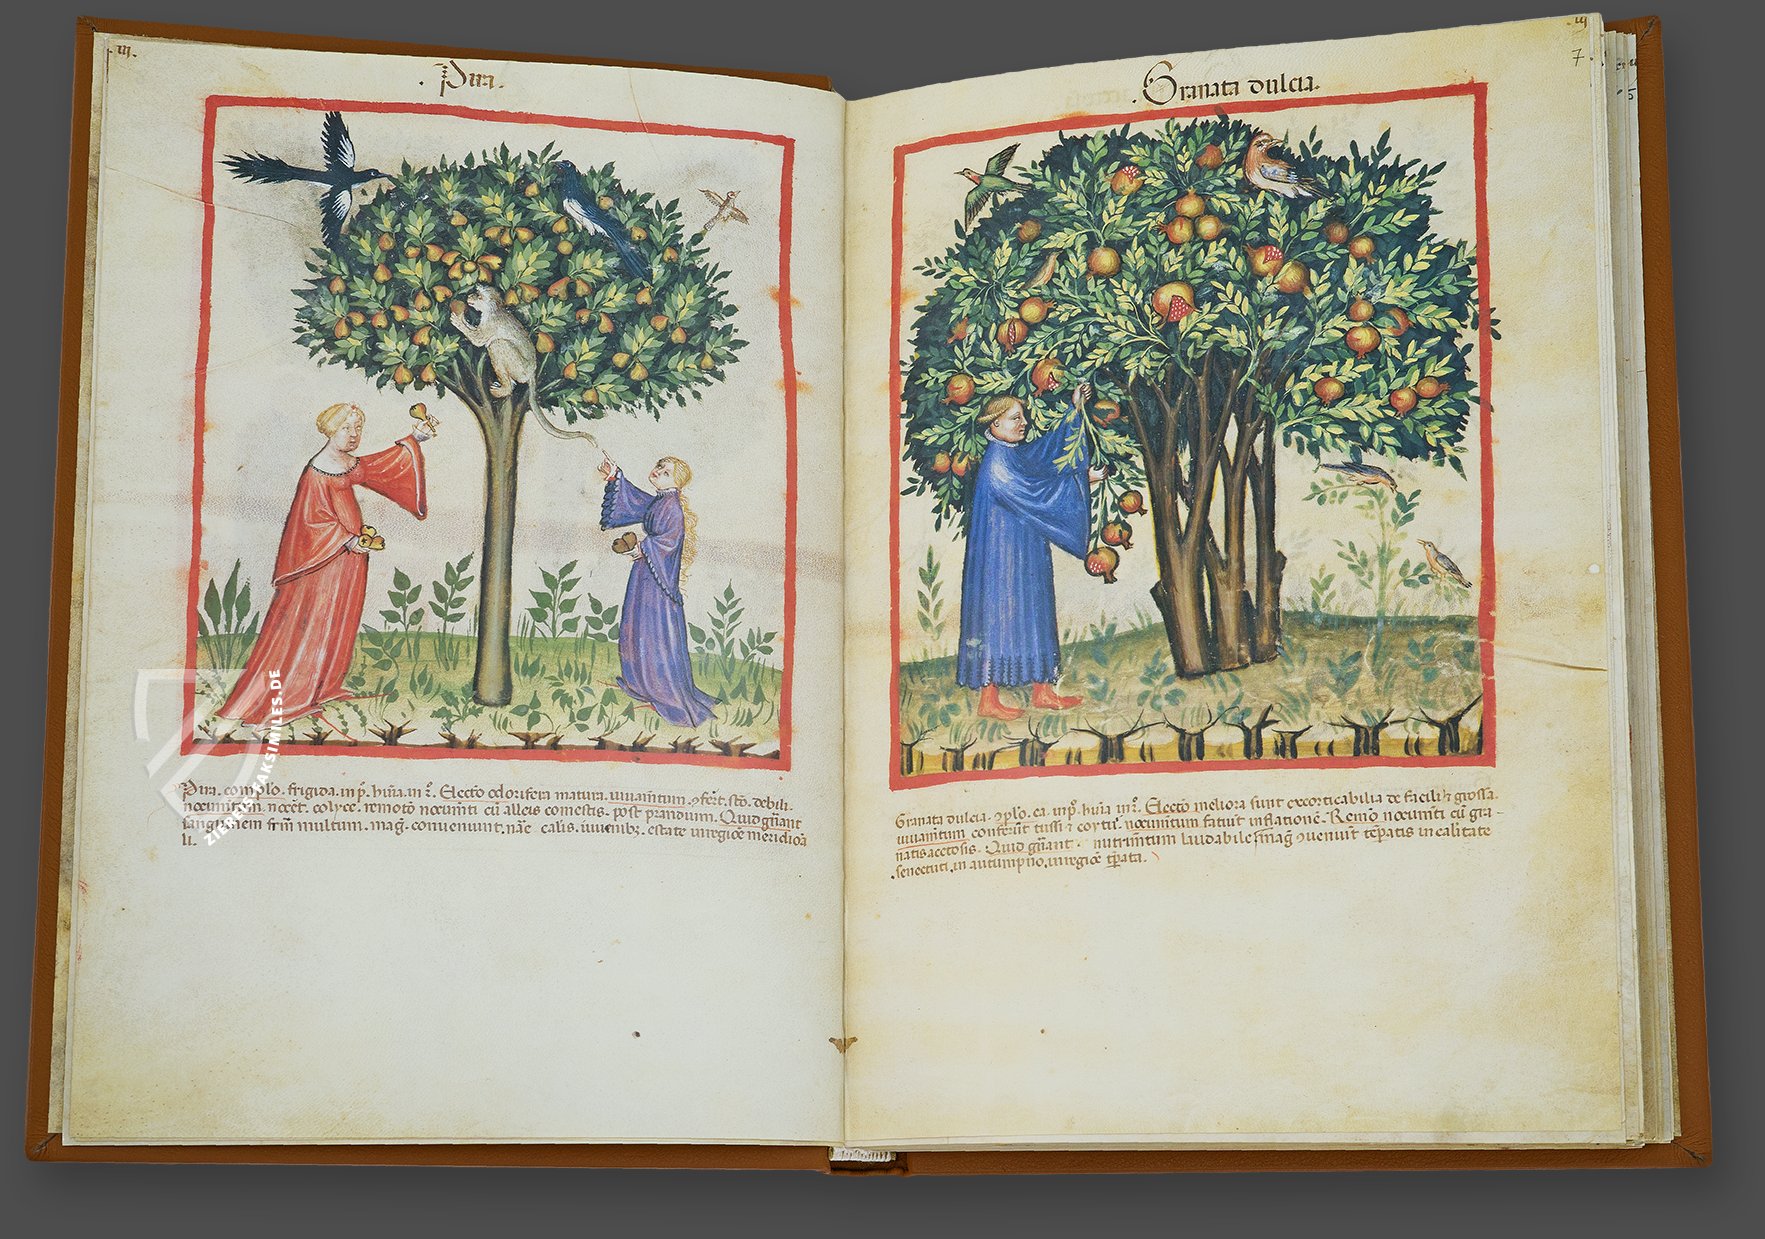 .III.
. Pira .
Pira . complō . frigida . in p̄ . hūīa . in 2̄ . Electō odorifera matura . iuuamentum . ꝯfert . stō . debili .
nocumentum . nocet . colyce . remotō nocumēti cū alleis comestis . post prandium . Quid gn̄ant
sanguinem multum . maḡ . conueniunt . calis . iuuenibꝫ . estate in regiōē meridioā
li .
.iij
7
. Granata dulcia .
Granata dulcia . ꝯplō . ca . in p̄ . hūīa in 2̄ . Electō meliora sunt excorticabilia de facili ⁊ grossa .
iuuamentum conferūt tussi ⁊ coytui . nocumentum faciūt inflationē . Remō nocumēti cū gra-
natis acetosis . Quid gn̄ant . nutrimentum laudabile maḡ ꝯueniūt tēperatis in calitate
. senectuti , in autumpno , in regiōē tēperata .
5
ZIEREIS-FAKSIMILES.DE